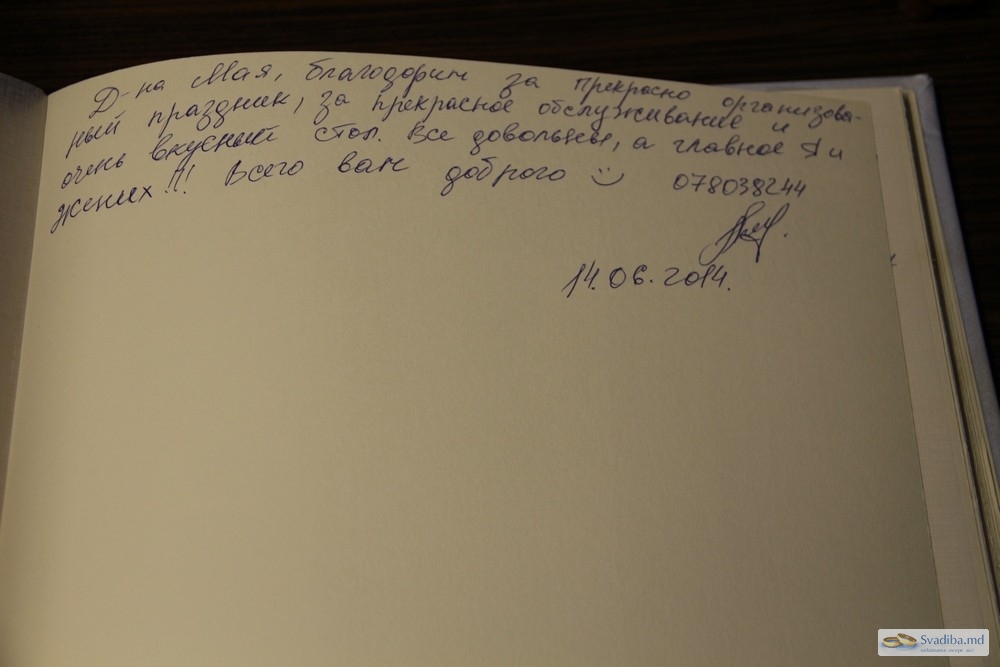 Д-на Мая, благодорим за прекрасно организова-
ный праздник, за прекрасное обслуживание и
очень вкусный стол. Все довольны, а главное Я и
жених!!! Всего вам доброго :) 078038244
14.06.2014.
Svadiba.md